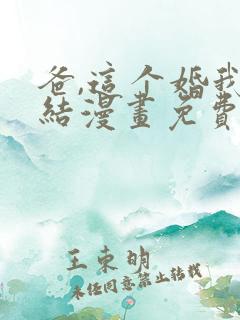 爸,這个婚我
結漫畫免費
王東明
未经同意禁止转载